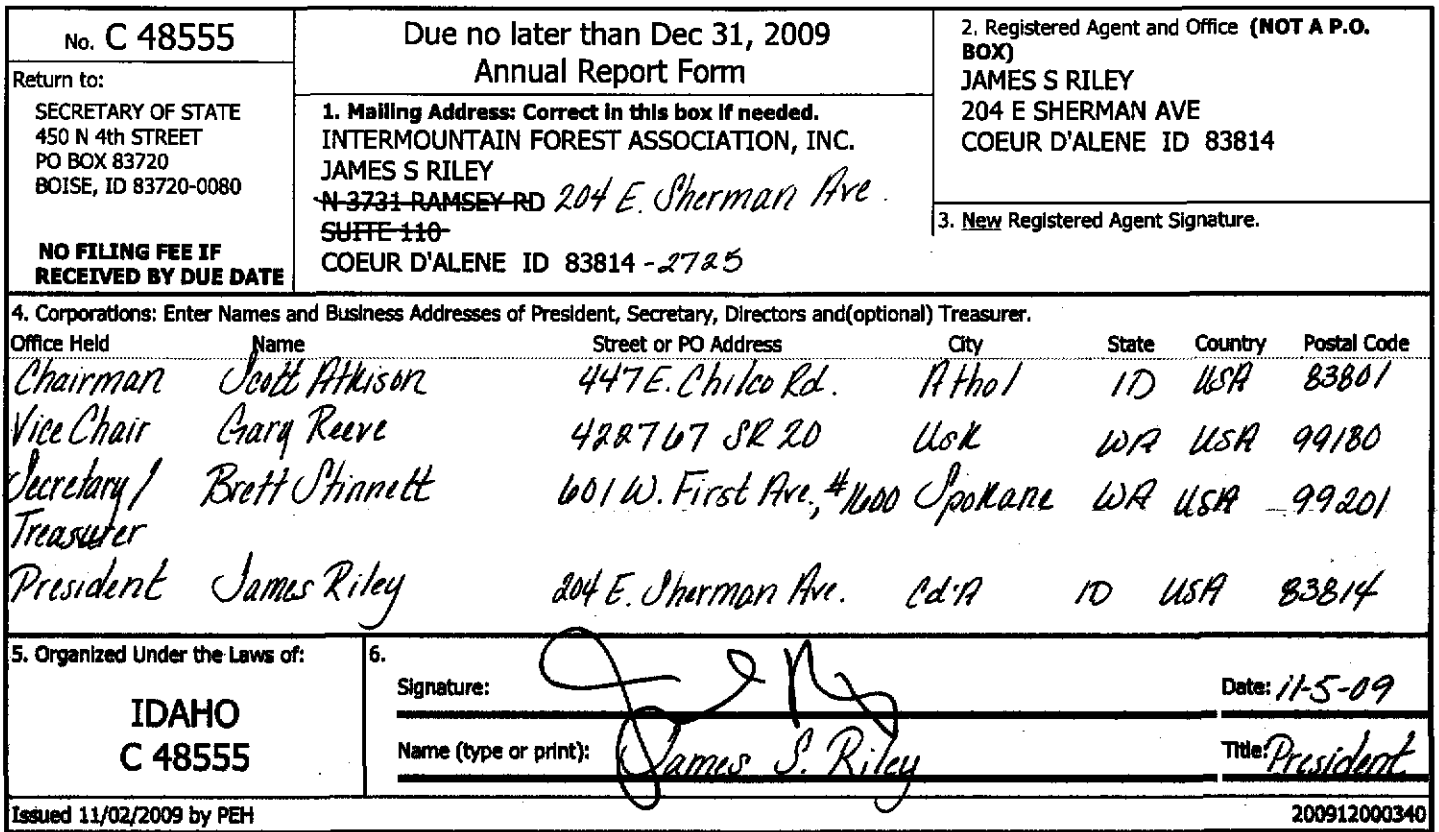 No. C 48555
Return to:
SECRETARY OF STATE
450 N 4th STREET
PO BOX 83720
BOISE, ID 83720-0080
NO FILING FEE IF
RECEIVED BY DUE DATE
Due no later than Dec 31, 2009
Annual Report Form
1. Mailing Address: Correct in this box if needed.
INTERMOUNTAIN FOREST ASSOCIATION, INC.
JAMES S RILEY
N 3731 RAMSEY RD 204 E. Sherman Ave.
SUITE 110
COEUR D'ALENE ID 83814 -2725
2. Registered Agent and Office (NOT A P.O.
BOX)
JAMES S RILEY
204 E SHERMAN AVE
COEUR D'ALENE ID 83814
3. New Registered Agent Signature.
4. Corporations: Enter Names and Business Addresses of President, Secretary, Directors and(optional) Treasurer.
Office Held Name Street or PO Address City State Country Postal Code
Chairman Scott Atkison 447 E. Chilco Rd. Athol ID USA 83801
Vice Chair Gary Reeve 422767 SR 20 Usk WA USA 99180
Secretary/ Brett Stinnett 601 W. First Ave, #1600 Spokane WA USA 99201
Treasurer
President James Riley 204 E. Sherman Ave. Cd'A ID USA 83814
5. Organized Under the Laws of:
IDAHO
C 48555
6.
Signature: Date: 11-5-09
Name (type or print): James S. Riley Title: President
Issued 11/02/2009 by PEH 200912000340